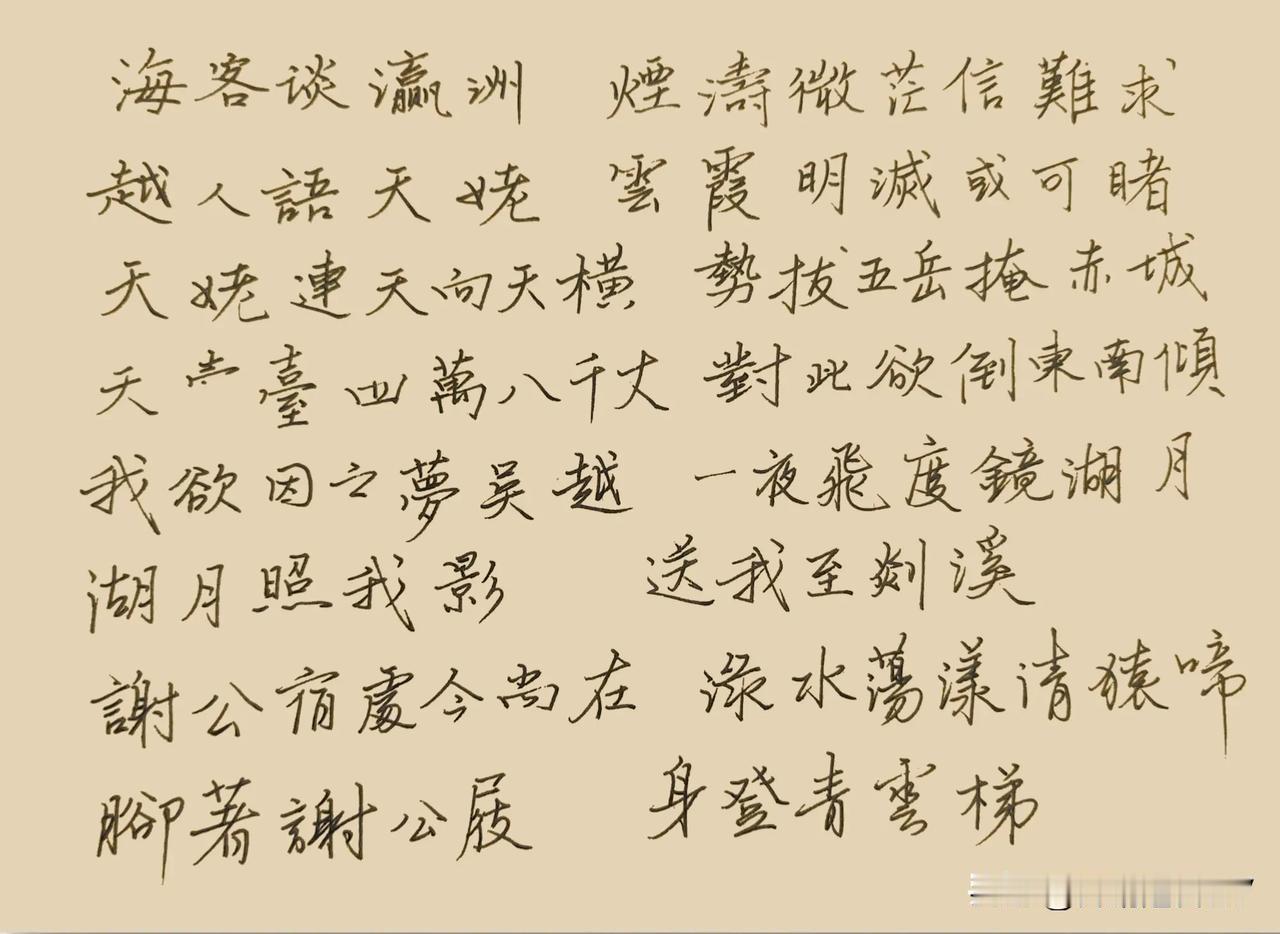 海客谈瀛洲 煙濤微茫信難求
越人語天姥 雲霞明滅或可睹
天姥連天向天橫 勢拔五岳掩赤城
天臺四萬八千丈 對此欲倒東南傾
我欲因之夢吳越 一夜飛度鏡湖月
湖月照我影 送我至剡溪
謝公宿處今尚在 淥水蕩漾清猿啼
腳著謝公屐 身登青雲梯